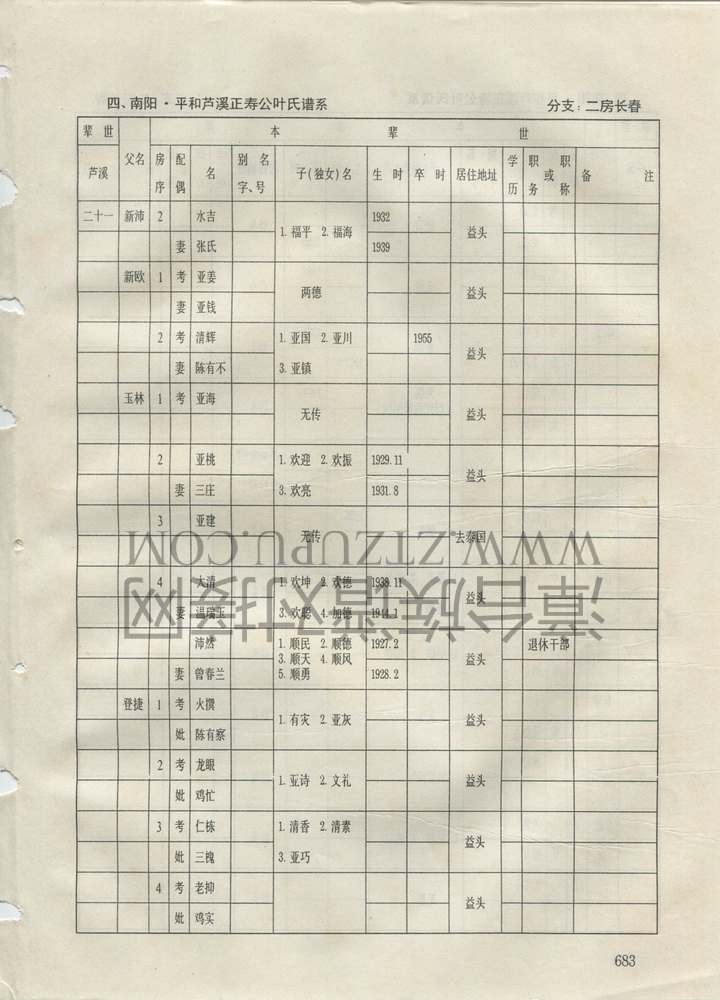 四、南阳·平和芦溪正寿公叶氏谱系 分支：二房长春
辈 世 本 辈 世
芦溪 父名 房序 配偶 名 别名字、号 子(独女)名 生 时 卒 时 居住地址 学历 职务 或 职称 备 注
二十一 新沛 2 水吉 1.福平 2.福海 1932 益头
妻 张氏 1939
新欧 1 考 亚姜 两德 益头
妻 亚钱
2 考 清辉 1.亚国 2.亚川 1955 益头
妻 陈有不 3.亚镇
玉林 1 考 亚海 无传 益头
2 亚桃 1.欢迎 2.欢振 1929.11 益头
妻 三庄 3.欢亮 1931.8
3 亚建 无传 去泰国
4 大清 1.欢坤 2.欢德 1938.11 益头
妻 温瑞玉 3.欢聪 4.加德 1944.1
沛然 1.顺民 2.顺德 1927.2 益头 退休干部
3.顺天 4.顺风
妻 曾春兰 5.顺勇 1928.2
登捷 1 考 火撰 1.有灾 2.亚灰 益头
妣 陈有察
2 考 龙眼 1.亚诗 2.文礼 益头
妣 鸡忙
3 考 仁栋 1.清香 2.清素 益头
妣 三槐 3.亚巧
4 考 老抑 益头
妣 鸡实
683
WWW.ZTZUPU.COM
漳台族谱对接网